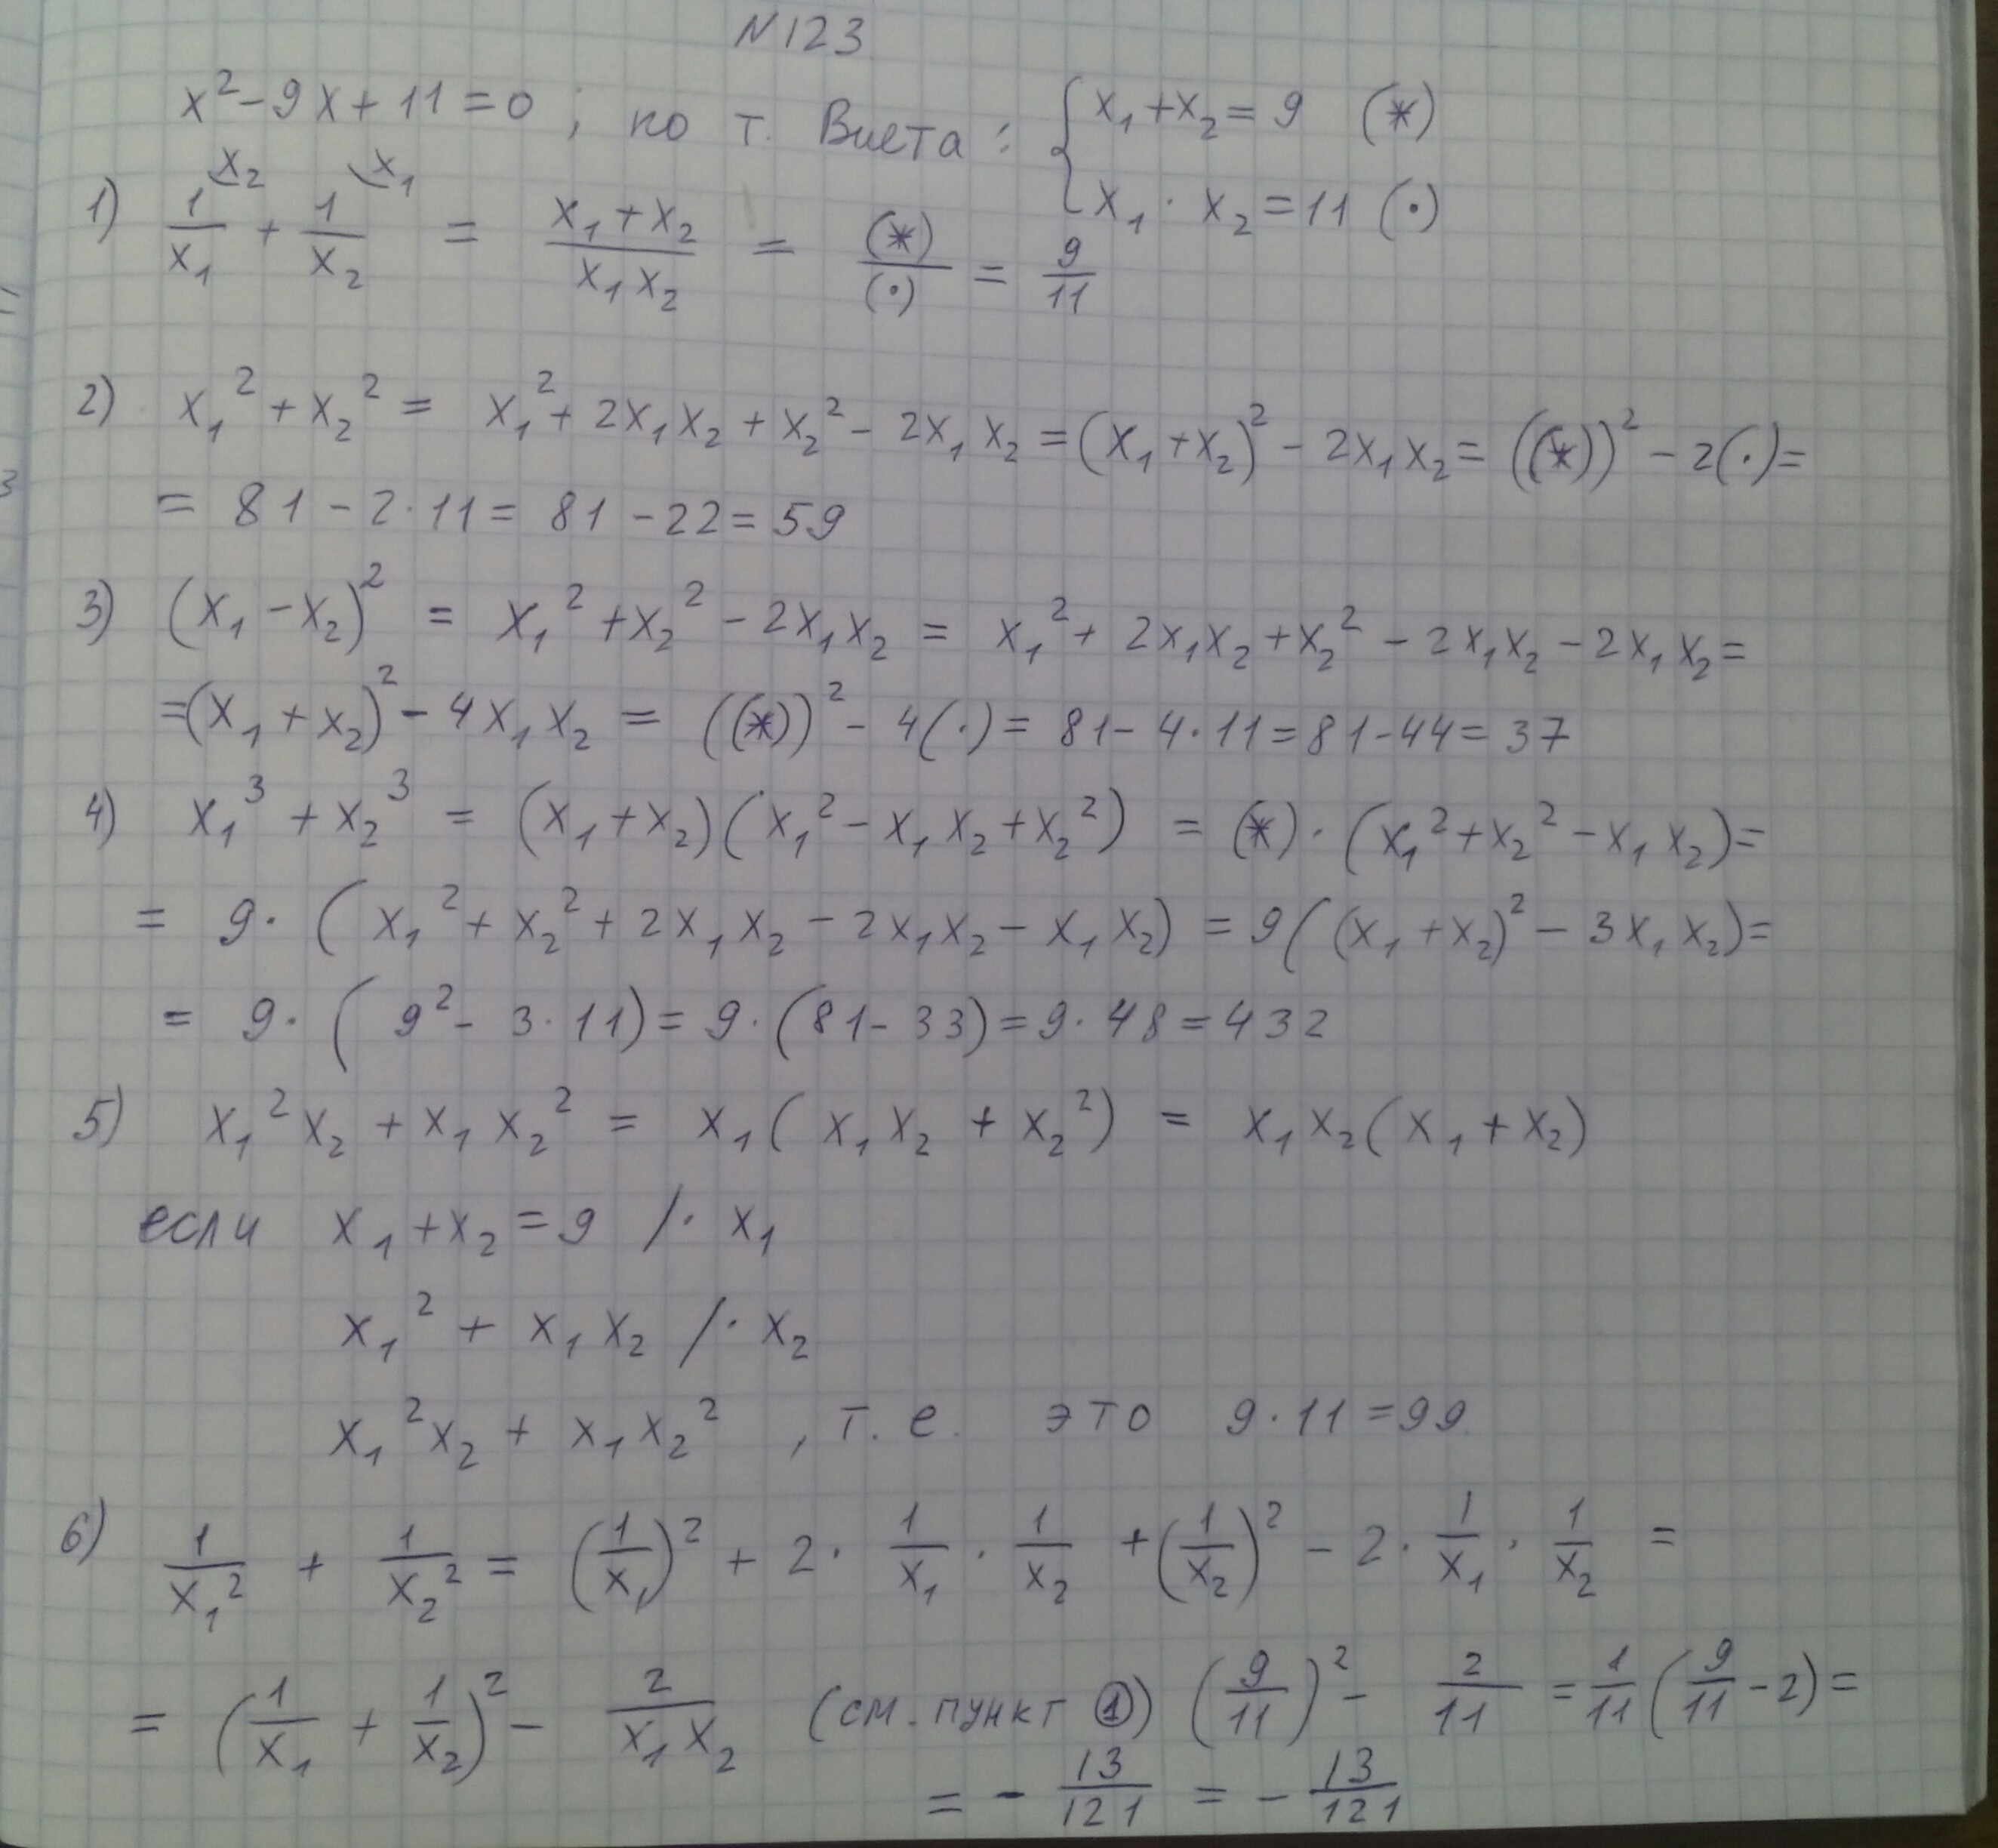 N123
x² - 9x + 11 = 0 ; по т. Виета : { x₁ + x₂ = 9 (*)
x₁ · x₂ = 11 (·)
1) 1/x₁ ⌣x₂ + 1/x₂ ⌣x₁ = (x₁ + x₂)/(x₁x₂) = (*)/(·) = 9/11
2) x₁² + x₂² = x₁² + 2x₁x₂ + x₂² - 2x₁x₂ = (x₁ + x₂)² - 2x₁x₂ = ((*))² - 2(·) =
= 81 - 2·11 = 81 - 22 = 59
3) (x₁ - x₂)² = x₁² + x₂² - 2x₁x₂ = x₁² + 2x₁x₂ + x₂² - 2x₁x₂ - 2x₁x₂ =
= (x₁ + x₂)² - 4x₁x₂ = ((*))² - 4(·) = 81 - 4·11 = 81 - 44 = 37
4) x₁³ + x₂³ = (x₁ + x₂)(x₁² - x₁x₂ + x₂²) = (*)·(x₁² + x₂² - x₁x₂) =
= 9·(x₁² + x₂² + 2x₁x₂ - 2x₁x₂ - x₁x₂) = 9((x₁ + x₂)² - 3x₁x₂) =
= 9·(9² - 3·11) = 9·(81 - 33) = 9·48 = 432
5) x₁²x₂ + x₁x₂² = x₁(x₁x₂ + x₂²) = x₁x₂(x₁ + x₂)
если x₁ + x₂ = 9 /· x₁
x₁² + x₁x₂ /· x₂
x₁²x₂ + x₁x₂² , т. е. это 9·11 = 99.
6) 1/x₁² + 1/x₂² = (1/x₁)² + 2· 1/x₁ · 1/x₂ + (1/x₂)² - 2· 1/x₁ · 1/x₂ =
= (1/x₁ + 1/x₂)² - 2/(x₁x₂) (см. пункт ①) (9/11)² - 2/11 = 1/11 (9/11 - 2) =
= - 13/121 = - 13/121